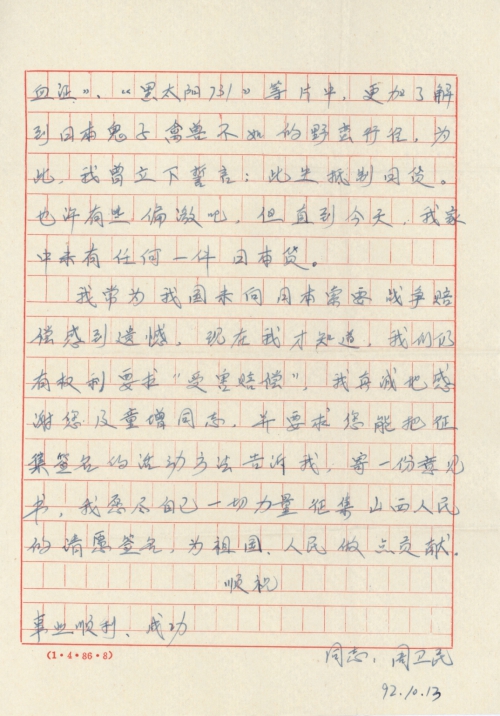 血证》、《黑太阳731》等片中，更加了解
到日本鬼子禽兽不如的野蛮行径，为
此，我曾立下誓言：此生抵制日货。
也许有些偏激吧，但直到今天，我家
中未有任何一件日本货。
我常为我国未向日本索要战争赔
偿感到遗憾，现在我才知道，我们仍
有权利要求“受害赔偿”，我真诚地感
谢您及童增同志，并要求您能把征
集签名的活动方法告诉我，寄一份意见
书，我愿尽自己一切力量征集山西人民
的请愿签名，为祖国、人民做点贡献。
顺祝
事业顺利、成功
(1·4·86·8)
同志：周卫民
92.10.13